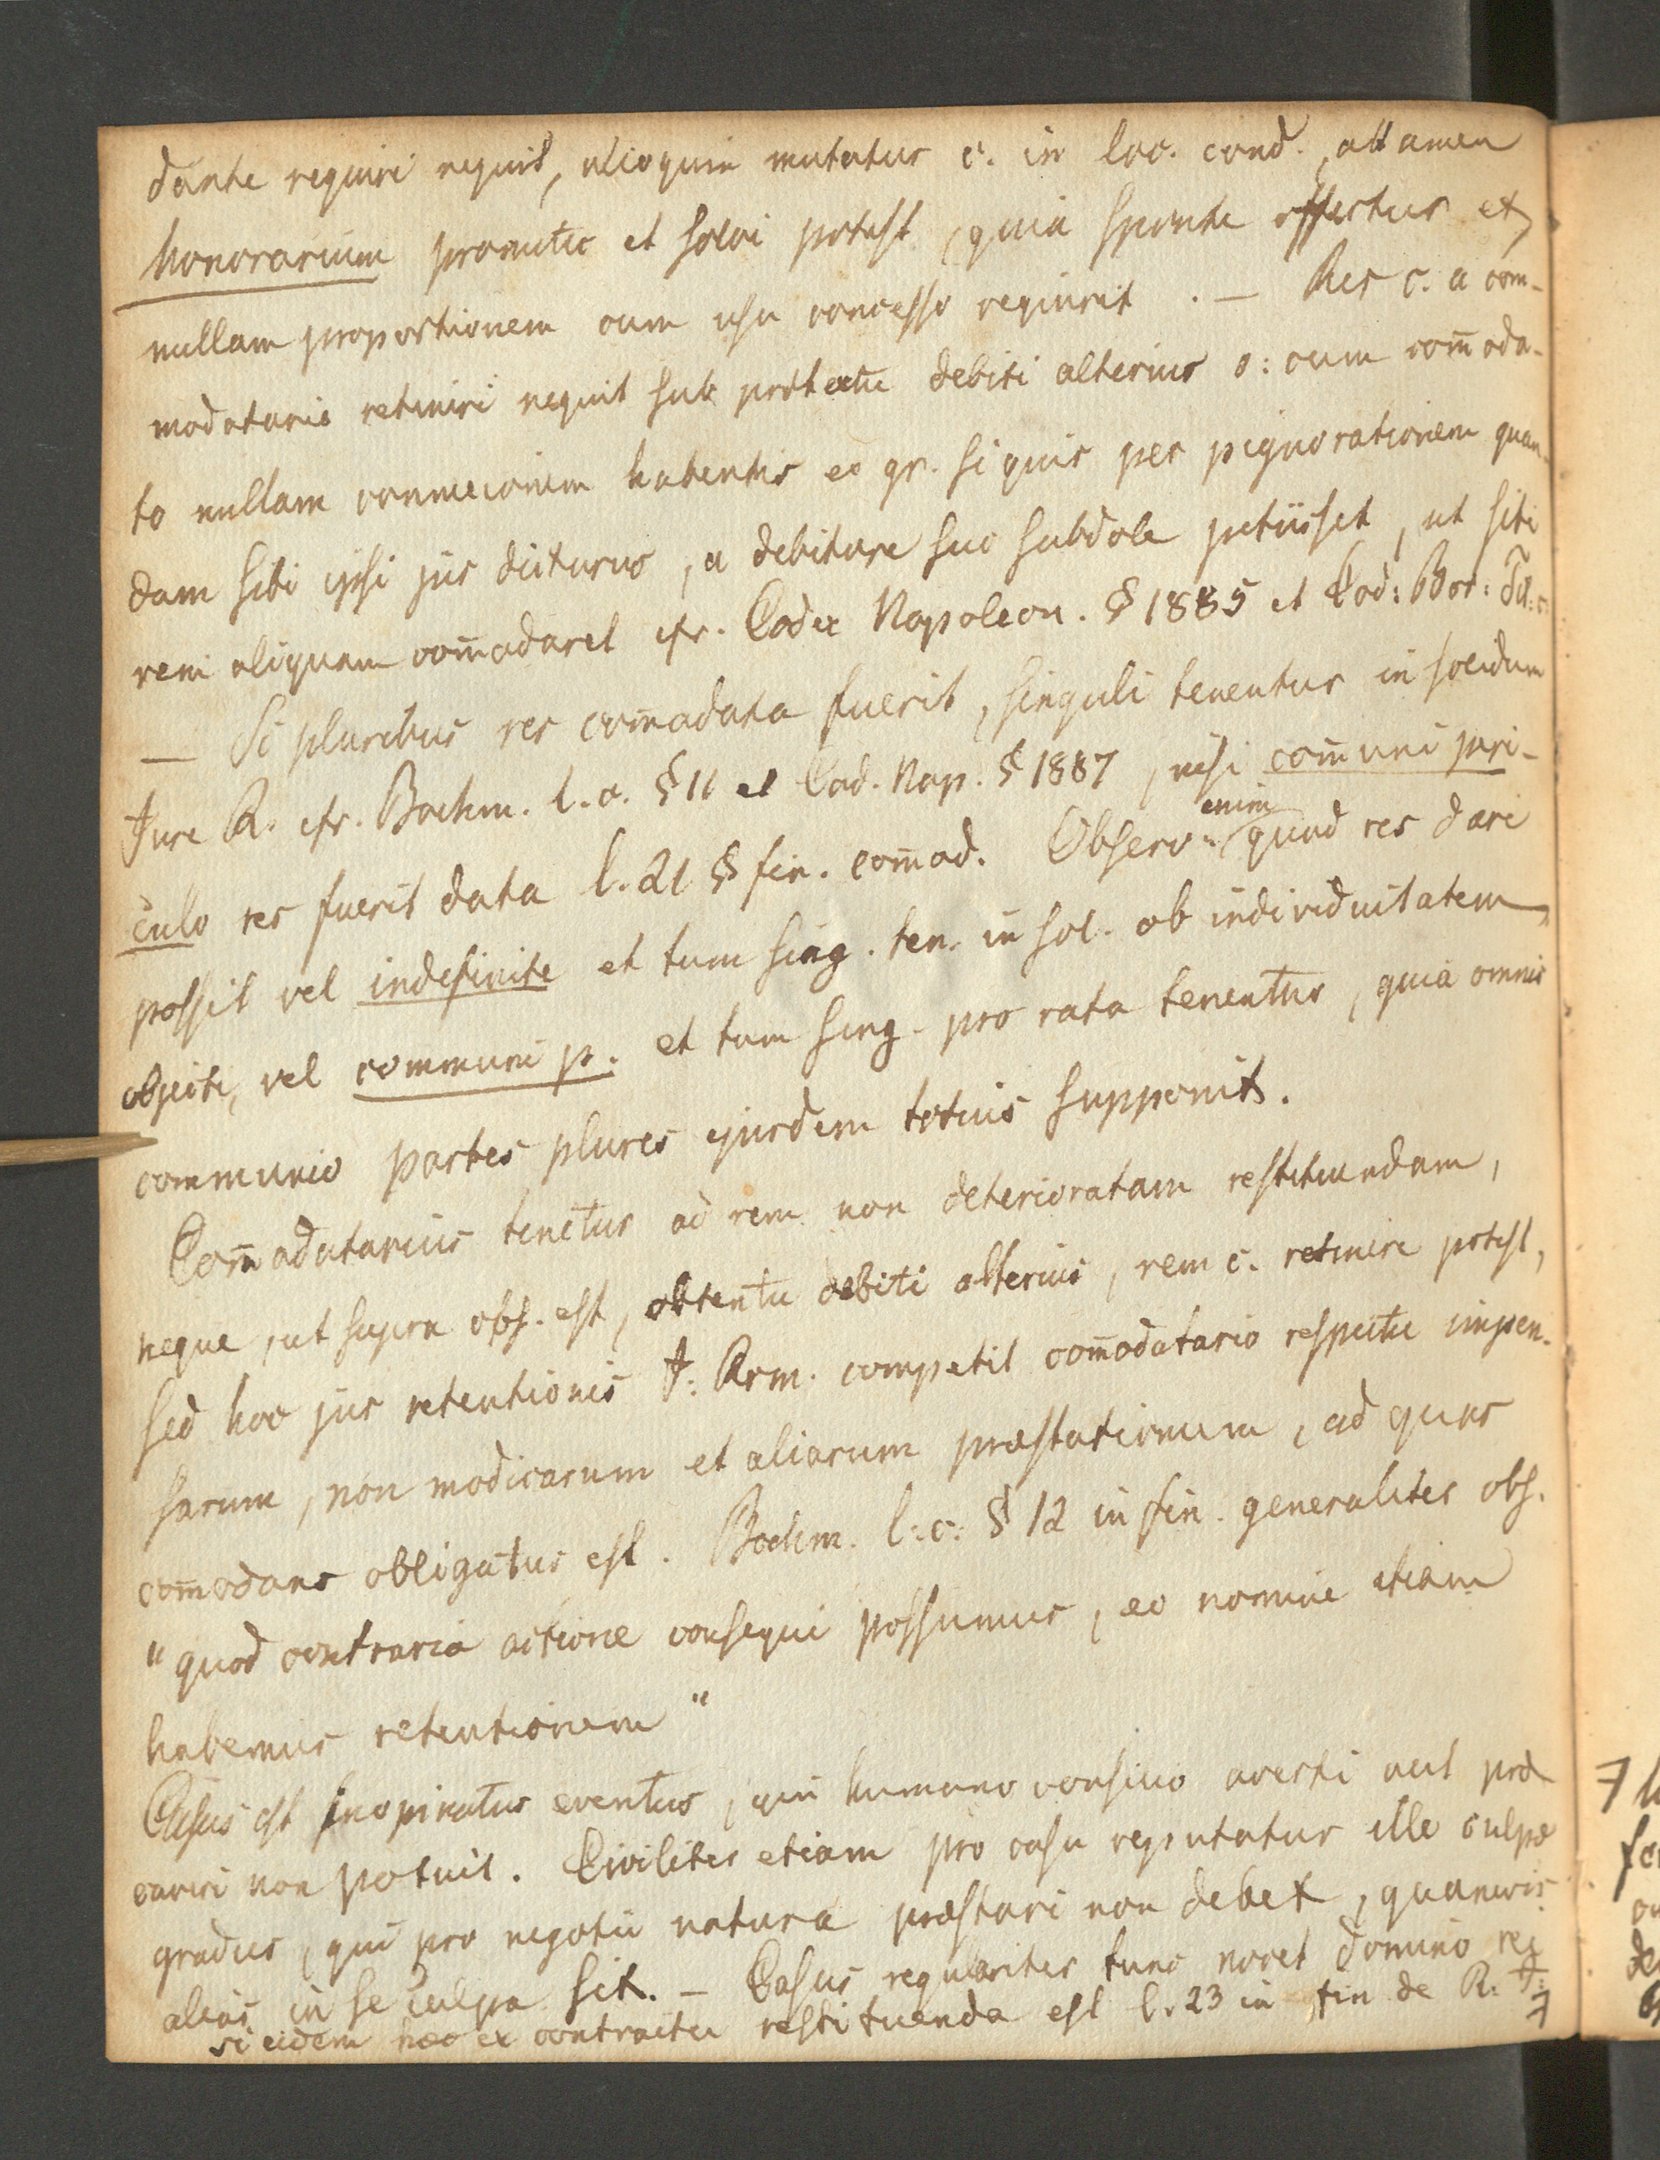 dante requiri nequit, alioquin mutatur c. in loc. cond., attamen
honorarium promitti et solvi potest, quia sponte offertur et
nullam proportionem cum usu concesso requirit. — Res c. a com-
modatario retineri nequit sub prætextu debiti alterius o: cum com̅oda-
to nullam connexionem habentis ex gr. si quis per pignorationem quan-
dam sibi ipsi jus dicturus, a debitore suo subdole petiisset, ut sibi
rem aliquam com̅odaret cfr. Codex Napoleon. § 1885 et Cod: Bor:
— Si pluribus res com̅odata fuerit, singuli tenentur in solidum
Jure R. cfr. Boehm. l. c. § 11 et Cod. Nap. § 1887, nisi com̅uni peri-
culo res fuerit data l. 21 § fin. com̅od. Observ: enim quod res dari
possit vel indefinite et tum sing. ten. in sol. ob individuitatem
objecti, vel communi p. et tum sing. pro rata tenentur, quia omnis
communio partes plures ejusdem totius supponit.
Com̅odatarius tenetur ad rem non deterioratam restituendam,
neque, ut supra obs. est, obtentu debiti alterius, rem c. retinere potest,
sed hoc jus retentionis J: Rom. competit com̅odatario respectu impen-
sarum, non modicarum et aliarum præstationum, ad quas
com̅odans obligatus est. Boehm. l: c: § 12 in fin. generaliter obs.
"quod contraria actione consequi possumus, eo nomine etiam
habemus retentionem"
Casus est inopinatus eventus, qui humano consilio averti aut præ
caveri non potuit. Civiliter etiam pro casu reputatur ille culpæ
gradus, qui pro negotii natura præstari non debet, quamvis
alias in se culpa sit. — Casus regulariter tunc nocet domino rei
si eidem hæc ex contractu restituenda est l. 23 in fin de R. J: